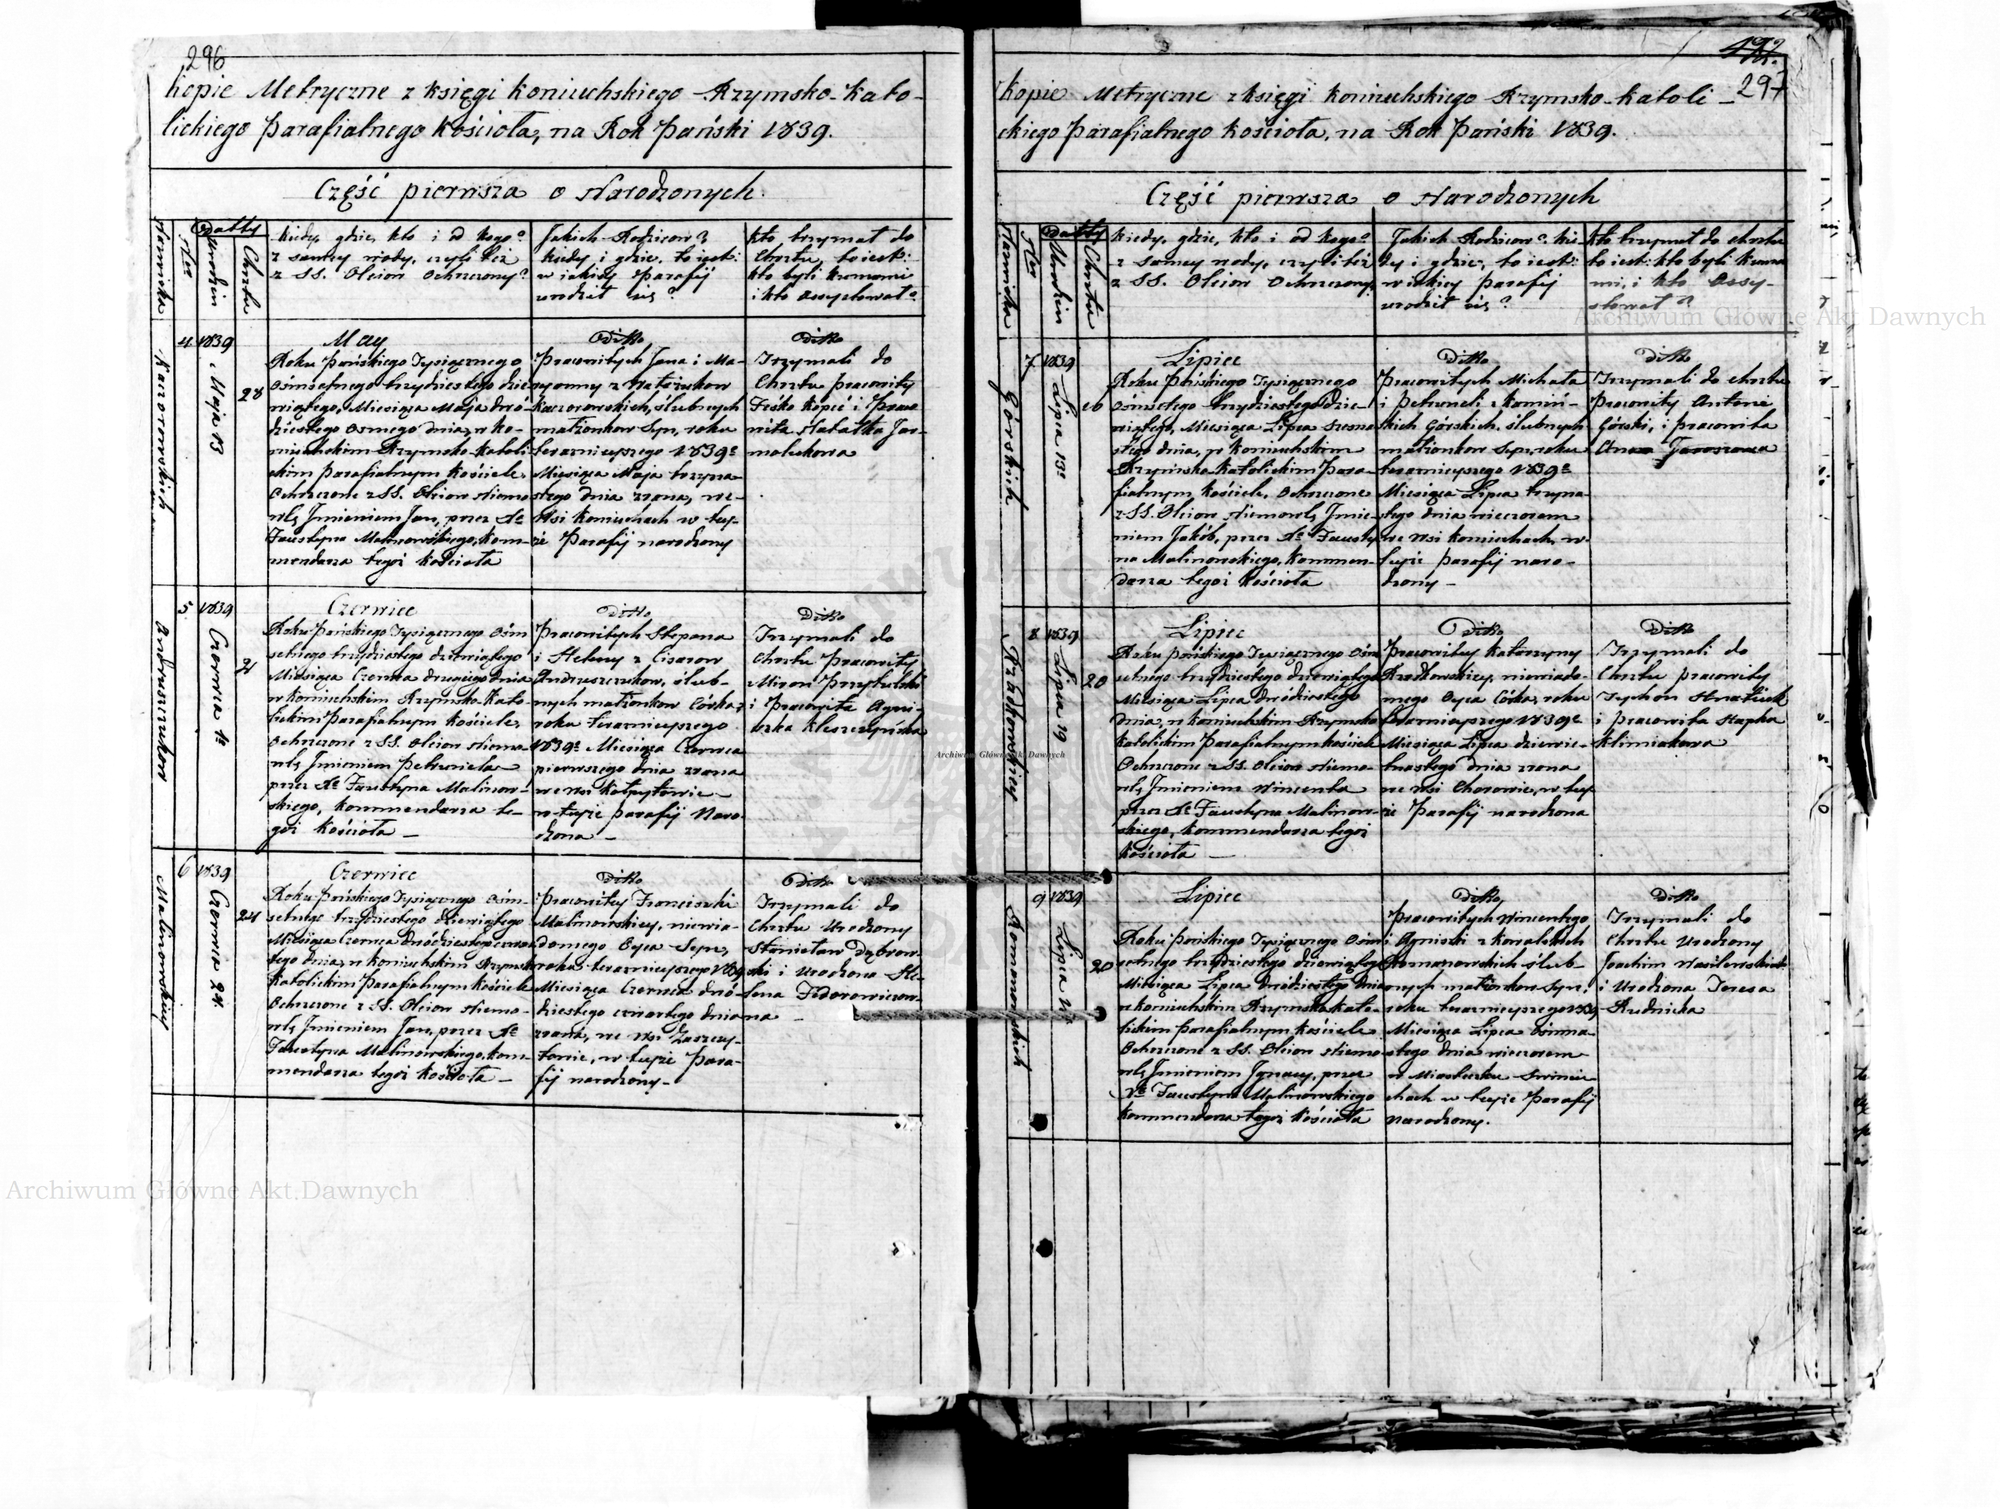 296
Kopie Metryczne z księgi Koniuchskiego Rzymsko-Kato-
lickiego Parafialnego Kościoła, na Rok Pański 1839.
Część pierwsza o Narodzonych.
Datty
Urodzin
Chrztu
Kiedy, gdzie, kto i od kogo?
z samey wody, czyli też
z SS. Oleiow Ochrzczony?
Jakich Rodzicow?
kiedy i gdzie, to iest:
w iakiey Parafij
urodził się?
Kto trzymał do
Chrztu, to iest:
kto byli Kumami
i kto assystował?
Kaczorowskich
4
1839
Maja 13
28
May
Roku Pańskiego Tysiącznego
Ośmsetnego trzydziestego dzie-
wiątego, Miesiąca Maja dwó-
dziestego osmego dnia, w Ko-
niuchskim Rzymsko-Katoli-
ckim Parafialnym Kościele,
Ochrzczone z SS. Oleiow Niemo-
wlę Jmieniem Jan, przez Xa
Faustyna Malinowskiego, Kom-
mendarza tegoż Kościoła
Ditto
Pracowitych Jana i Ma-
ryanny z
Kaczorowskich, ślubnych
małżonkow Syn, roku
teraznieyszego 1839o
Miesiąca Maja trzyna-
stego dnia zrana, we
Wsi Koniuchach w tey-
że Parafij narodzony
Ditto
Trzymali do
Chrztu Pracowity
Fesko Kopeć i Praco-
wita Natalka Jar-
molukowa
Andruszczukow
5
1839
Czerwca 1a
2
Czerwiec
Roku Pańskiego Tysiącznego Ośm
setnego trzydziestego dziewiątego
Miesiąca Czerwca drugiego dnia
w Koniuchskim Rzymsko-Kato-
lickim Parafialnym Kościele,
Ochrzczone z SS. Oleiow Niemo
wlę Jmieniem Petrunela
przez Xa Faustyna Malinow-
skiego, Kommendarza te-
goż Kościoła
Ditto
Pracowitych Stepana
i Heleny z Cisarow
Andruszczukow, ślub-
nych małżonkow Córka,
roku teraznieyszego
1839o Miesiąca Czerwca
pierwszego dnia zrana
we wsi Kołpytowie
w teyże Parafij Naro-
dzona
Ditto
Trzymali do
Chrztu Pracowity
Miron Przytulski
i Pracowita Agni-
szka Kleszczyńska
Malinowskiey
6
1839
Czerwca 24
24
Czerwiec
Roku Pańskiego Tysiącznego Ośm-
setnego trzydziestego dziewiątego
Miesiąca Czerwca dwódziestego czwar
tego dnia, w Koniuchskim Rzymsko
Katolickim Parafialnym Kościele
Ochrzczone z SS. Oleiow Niemo-
wlę Jmieniem Jan, przez Xa
Faustyna Malinowskiego, Kom-
mendarza tegoż Kościoła
Ditto
Pracowitey Franciszki
Malinowskiey, niewia-
domego Oyca Syn,
roku teraznieyszego 1839
Miesiąca Czerwca dwó-
dziestego czwartego dnia
zrana, we wsi Zaszczy-
towie, w teyże Para-
fij narodzony
Ditto
Trzymali do
Chrztu Urodzony
Stanisław Dąbrow-
ski i Urodzona He-
lena Fedorowiczow-
na
297
Kopie Metryczne z księgi Koniuchskiego Rzymsko-Katoli-
ckiego Parafialnego Kościoła, na Rok Pański 1839.
Część pierwsza o Narodzonych
Datty
Urodzin
Chrztu
Kiedy, gdzie, kto i od kogo?
z samey wody, czyli też
z SS. Oleiow Ochrzczony?
Jakich Rodzicow? kie
dy i gdzie, to iest:
w iakiey Parafij
urodził się?
Kto trzymał do chrztu
to iest: kto byli Kuma
mi, i kto Assy-
stował?
Górskich
7
1839
Lipca 13o
16
Lipiec
Roku Pańskiego Tysiącznego
Ośmsetnego trzydziestego dzie-
wiątego, Miesiąca Lipca szesna
stego dnia, w Koniuchskim
Rzymsko-Katolickim Para-
fialnym Kościele, Ochrzczone
z SS. Oleiow Niemowlę Jmie-
niem Jakób, przez Xa Fausty-
na Malinowskiego, Kommen-
darza tegoż Kościoła
Ditto
Pracowitych Michała
i Petruneli z Kamiń-
skich Górskich, ślubnych
małżonkow Syn, roku
teraznieyszego 1839o
Miesiąca Lipca trzyna-
stego dnia wieczorem
we Wsi Koniuchach, w
teyże Parafij naro-
dzony
Ditto
Trzymali do chrztu
Pracowity Antoni
Górski, i pracowita
Anna Jaroszowa
8
1839
Lipca 19
20
Lipiec
Roku Pańskiego Tysiącznego Ośm
setnego trzydziestego dziewiątego
Miesiąca Lipca dwódziestego
dnia, w Koniuchskim Rzymsko
Katolickim Parafialnym Kościele
Ochrzczone z SS. Oleiow Niemo-
wlę Jmieniem Wincenta
przez Xa Faustyna Malinow-
skiego, Kommendarza tegoż
Kościoła
Ditto
Pracowitey Katarzyny
niewiado-
mego Oyca Córka, roku
teraznieyszego 1839o
Miesiąca Lipca dziewię-
tnastego dnia zrana
we wsi Chorowie, w tey
że Parafij narodzona
Ditto
Trzymali do
Chrztu pracowity
Tychon Hnatiuk
i pracowita Hapka
Klimiakowa
Romanowskich
9
1839
Lipca
20
Lipiec
Roku Pańskiego Tysiącznego Ośm
setnego trzydziestego dziewiątego
Miesiąca Lipca dwódziestego dnia
w Koniuchskim Rzymsko-Kato-
lickim Parafialnym Kościele
Ochrzczone z SS. Oleiow Niemo-
wlę Jmieniem Jgnacy, przez
Xa Faustyna Malinowskiego
Kommendarza tegoż Kościoła
Ditto
Pracowitych Wincentego
i Agniszki z Kowalskich
Romanowskich ślub-
nych małżonkow Syn,
roku teraznieyszego 1839
Miesiąca Lipca Ośmna-
stego dnia wieczorem
w Miasteczku Swiniu-
chach w teyże Parafij
narodzony.
Ditto
Trzymali do
Chrztu Urodzony
Joachim Wasilewski
i Urodzona Teresa
Rudnicka
Archiwum Główne Akt Dawnych
Archiwum Główne Akt Dawnych
Archiwum Główne Akt Dawnych